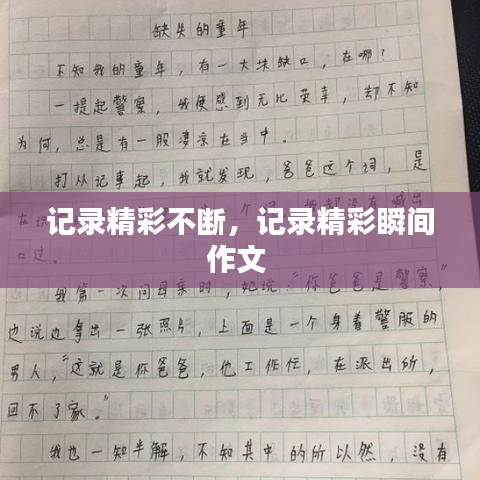 缺失的童年
不知我的童年，有一大块缺口，在哪？
一提起警察，我便感到无比荣幸，却不知
为何，总是有一股凄凉在当中。
打从记事起，我就发现，爸爸这个词，是
口过。
记录精彩不断，记录精彩瞬间
作文
我第一次问母亲时，她说："你爸爸是警察，"
她说边拿出一张照片，上面是一个身着警服的
男人，"这就是你爸爸，他工作忙，在派出所，
回不了家。"
我也一知半解，不知其中的所以然，没有